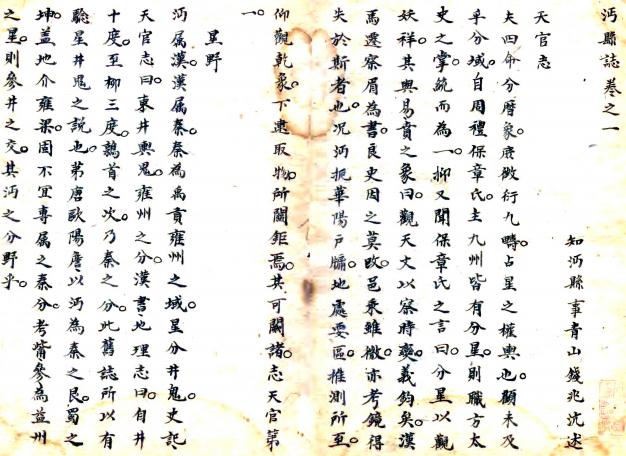 沔縣誌卷之一
知沔縣事青山錢兆沆述
天官志
夫四命分曆象庶徵衍九疇占星之權輿也顧未及
乎分域自周禮保章氏主九州皆有分星則職方太
史之掌統而為一抑又聞保章氏之言曰分星以觀
妖祥其與易賁之象曰觀天文以察時變義鈞矣漢
馬遷察眉為書良史因之莫改邑乘雖微亦考鏡得
失於斯者也况沔扼華陽戸牖地處要區推測所至
仰觀乾象下逮取物所關鉅焉其可闕諸志天官第
一
星野
沔属漢漢属秦秦為禹貢雍州之域星分井鬼史記
天官志曰東井輿鬼雍州之分漢書地理志曰自井
十度至柳三度鶉首之次乃秦之分此舊誌所以有
驗星井鬼之説也第唐歐陽詹以沔為秦之艮蜀之
坤盖地介雍梁固不宜專属之秦分考觜參為益州
之星則參井之交其沔之分野乎